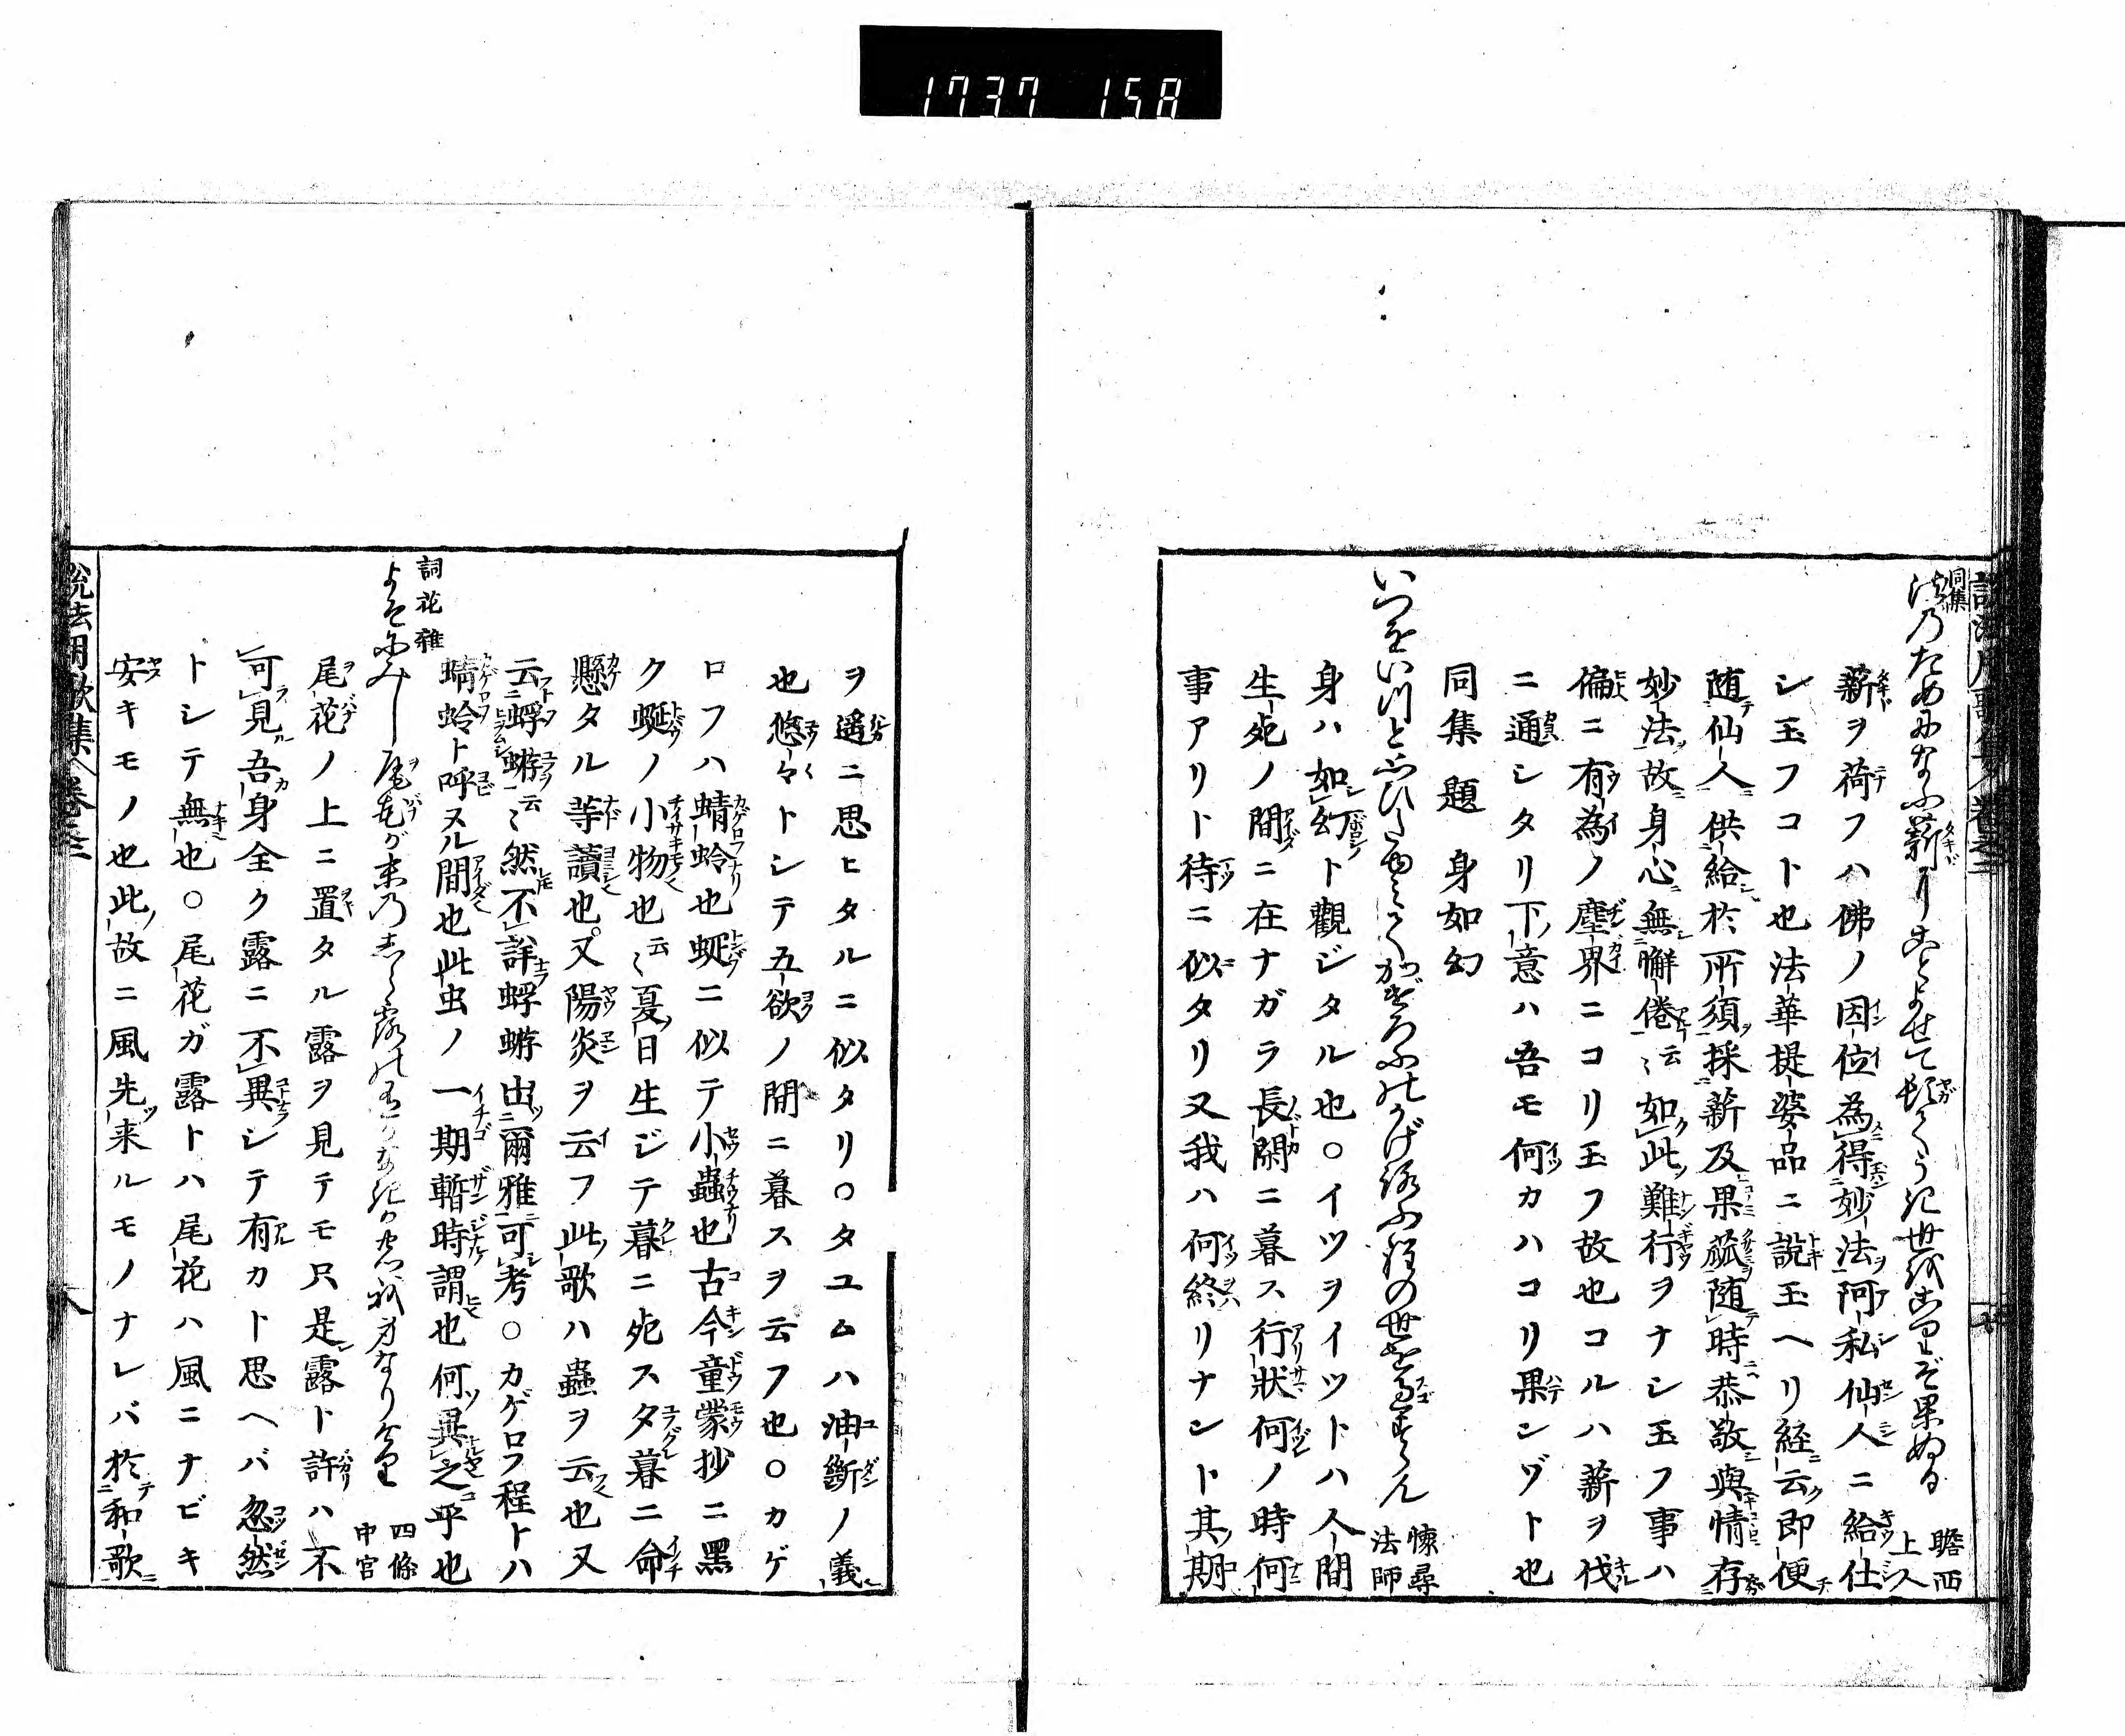 1737 158
同集
法のためになふ薪にことよせてやがてうき世をこりぞ果ぬる 瞻西上人
薪ヲ荷フハ佛ノ因位為得妙法阿私仙人ニ給仕
シ玉フコト也法華提婆品ニ説玉ヘリ経云即便
随仙人供給於所須採薪及果蓏随時恭敬與情存
妙法故身心無懈倦云〻如此難行ヲナシ玉フ事ハ
偏ニ有為ノ塵界ニコリ玉フ故也コルハ薪ヲ伐
ニ通シタリ下意ハ吾モ何カハコリ果ンヅト也
同集題 身如幻
いつをいつと思ひたゆみてかげろふのかげろふ程の世を過すらん 懐尋法師
身ハ如幻ト觀ジタル也○イツヲイツトハ人間
生死ノ間ニ在ナガラ長閑ニ暮ス行狀何ノ時何
事アリト待ニ似タリ又我ハ何終リナント其期
ヲ遥ニ思ヒタルニ似タリ○タユムハ油斷ノ義
也悠々トシテ五欲ノ間ニ暮スヲ云フ也○カゲ
ロフハ蜻蛉也蜓ニ似テ小蟲也古今童蒙抄ニ黑
ク蜓ノ小物也云〻夏日生ジテ暮ニ死スタ暮ニ命
懸タル等讀也又陽炎ヲ云フ此歌ハ蟲ヲ云也又
云蜉蝣云〻然不詳蜉蝣出爾雅可考○カゲロフ程トハ
蜻蛉ト呼ヌル間也此虫ノ一期暫時謂也何異之乎也
詞花雜
よそにみし尾花が末のしら露はあるかなきかの我身なりけり 四條中宮
尾花ノ上ニ置タル露ヲ見テモ只是露ト許ハ不
可見吾身全ク露ニ不異シテ有カト思ヘバ忽然
トシテ無也○尾花ガ露トハ尾花ハ風ニナビキ
安キモノ也此故ニ風先来ルモノナレバ於和歌
説法用歌集 巻三